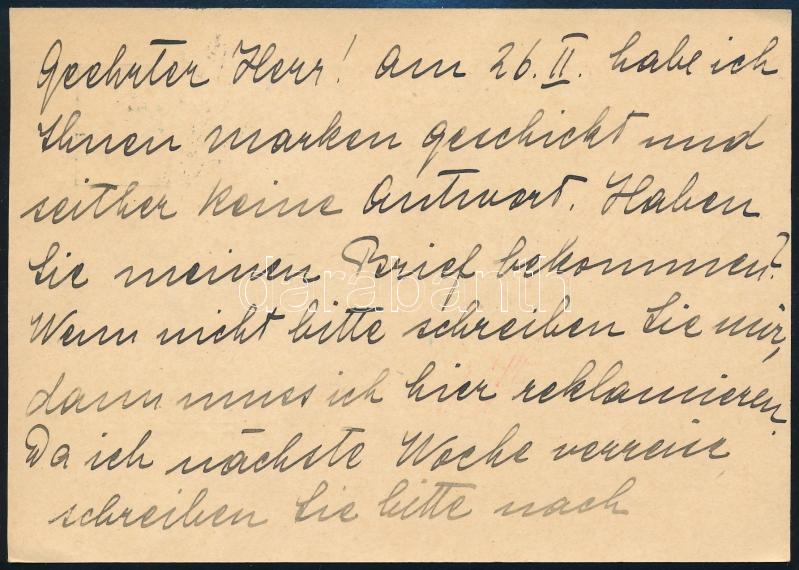 Geehrter Herr! Am 26. II. habe ich
Ihnen marken geschickt und
seither keine Antwort. Haben
Sie meinen Brief bekommen?
darabanth
Wenn nicht bitte schreiben Sie mir,
dann muss ich hier reklamieren.
Da ich nächste Woche verreise
schreiben Sie bitte nach